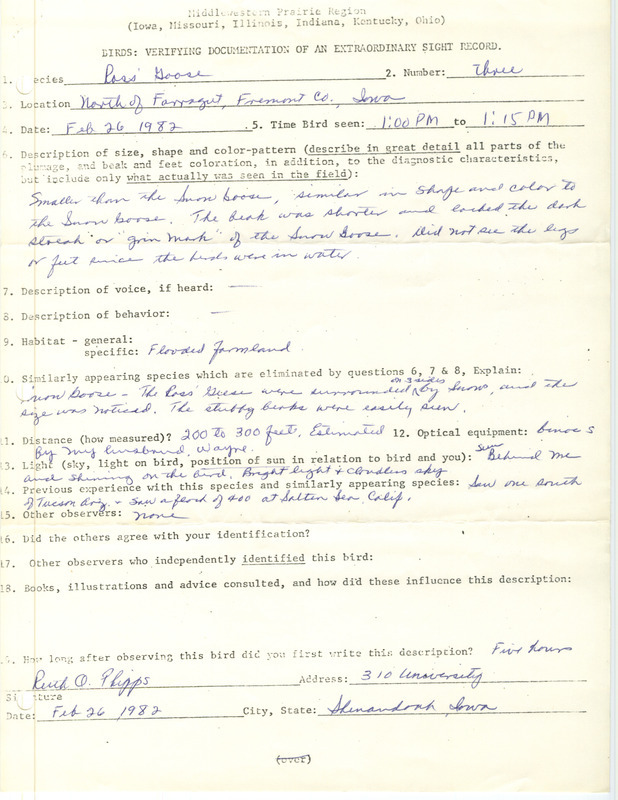 Middlewestern Prairie Region
(Iowa, Missouri, Illinois, Indiana, Kentucky, Ohio)
BIRDS: VERIFYING DOCUMENTATION OF AN EXTRAORDINARY SIGHT RECORD.
1. Species Ross' Goose 2. Number: Three
3. Location North of Farragut, Fremont Co., Iowa
4. Date: Feb 26 1982 . 5. Time Bird seen: 1:00 PM to 1:15 PM
6. Description of size, shape and color-pattern (describe in great detail all parts of the
plumage, and beak and feet coloration, in addition, to the diagnostic characteristics,
but include only what actually was seen in the field):
Smaller than the Snow Goose, similar in shape and color to
the Snow Goose. The beak was shorter and lacked the dark
streak or "grin mark" of the Snow Goose. Did not see the legs
or feet since the birds were in water.
7. Description of voice, if heard: —
8. Description of behavior: —
9. Habitat - general:
specific: Flooded farmland
10. Similarly appearing species which are eliminated by questions 6, 7 & 8, Explain:
Snow Goose - The Ross' Geese were surrounded on 3 sides by Snows, and the
size was noticed. The stubby beaks were easily seen.
11. Distance (how measured)? 200 to 300 feet, Estimated 12. Optical equipment: binocs
By my husband, Wayne.
13. Light (sky, light on bird, position of sun in relation to bird and you): Sun Behind me
and shining on the bird. Bright light & cloudless sky
14. Previous experience with this species and similarly appearing species: Saw one south
of Tucson Ariz. & saw a flock of 400 at Salton Sea, Calif.
15. Other observers: none
16. Did the others agree with your identification?
17. Other observers who independently identified this bird:
18. Books, illustrations and advice consulted, and how did these influence this description:
. How long after observing this bird did you first write this description? Five hours
Ruth O. Phipps Address: 310 University
Signature
Date: Feb 26 1982 City, State: Shenandoah, Iowa
(over)